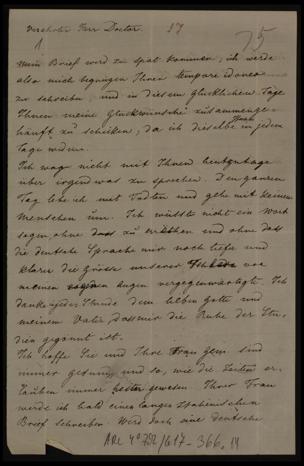 Verehrter Herr Doctor. 17
1 75
mein Brief wird zu spät kommen; ich werde
also mich begnügen Ihnen tempore idoneo
zu schreiben und in diesem glücklichen Tage
Ihnen meine Glückwünsche zusammenge-
häuft zu schicken, da ich dieselbe Ihnen in jedem
Tage widme.
Ich wag nicht mit Ihnen heutzutage
über irgend was zu sprechen. Den ganzen
Tag lebe ich mit Todten und gehe mit keinem
Menschen um. Ich wüsste nicht ein Wort
sagen, ohne dass zu und ohne dass
die deutsche Sprache mir noch tiefer und
klarer die Grösse unserer vor
meinen Augen vergegenwärtigt. Ich
danke jede Stunde dem lieben Gotte und
meinem Vater, dass mir die Ruhe der Stu-
dien gegönnt ist.
Ich hoffe Sie und Ihre Frau Gem. sind
immer gesund und so, wie die Zeiten er-
lauben immer gewesen. Ihrer Frau
werde ich bald einen langen italienischen
Brief schreiben. Wird doch eine deutsche
ARC 4° 752/617-366.14